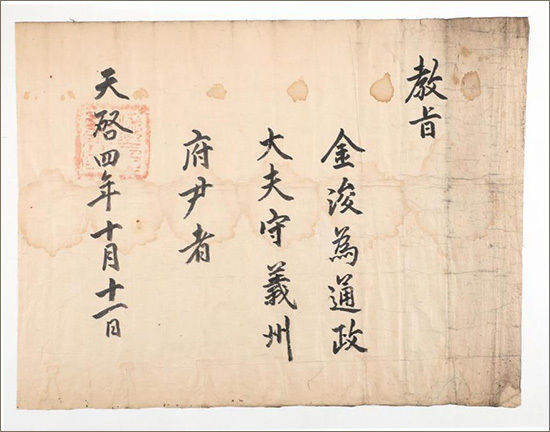 教旨
金浚為通政
大夫守義州
府尹者
天啓四年十月十一日